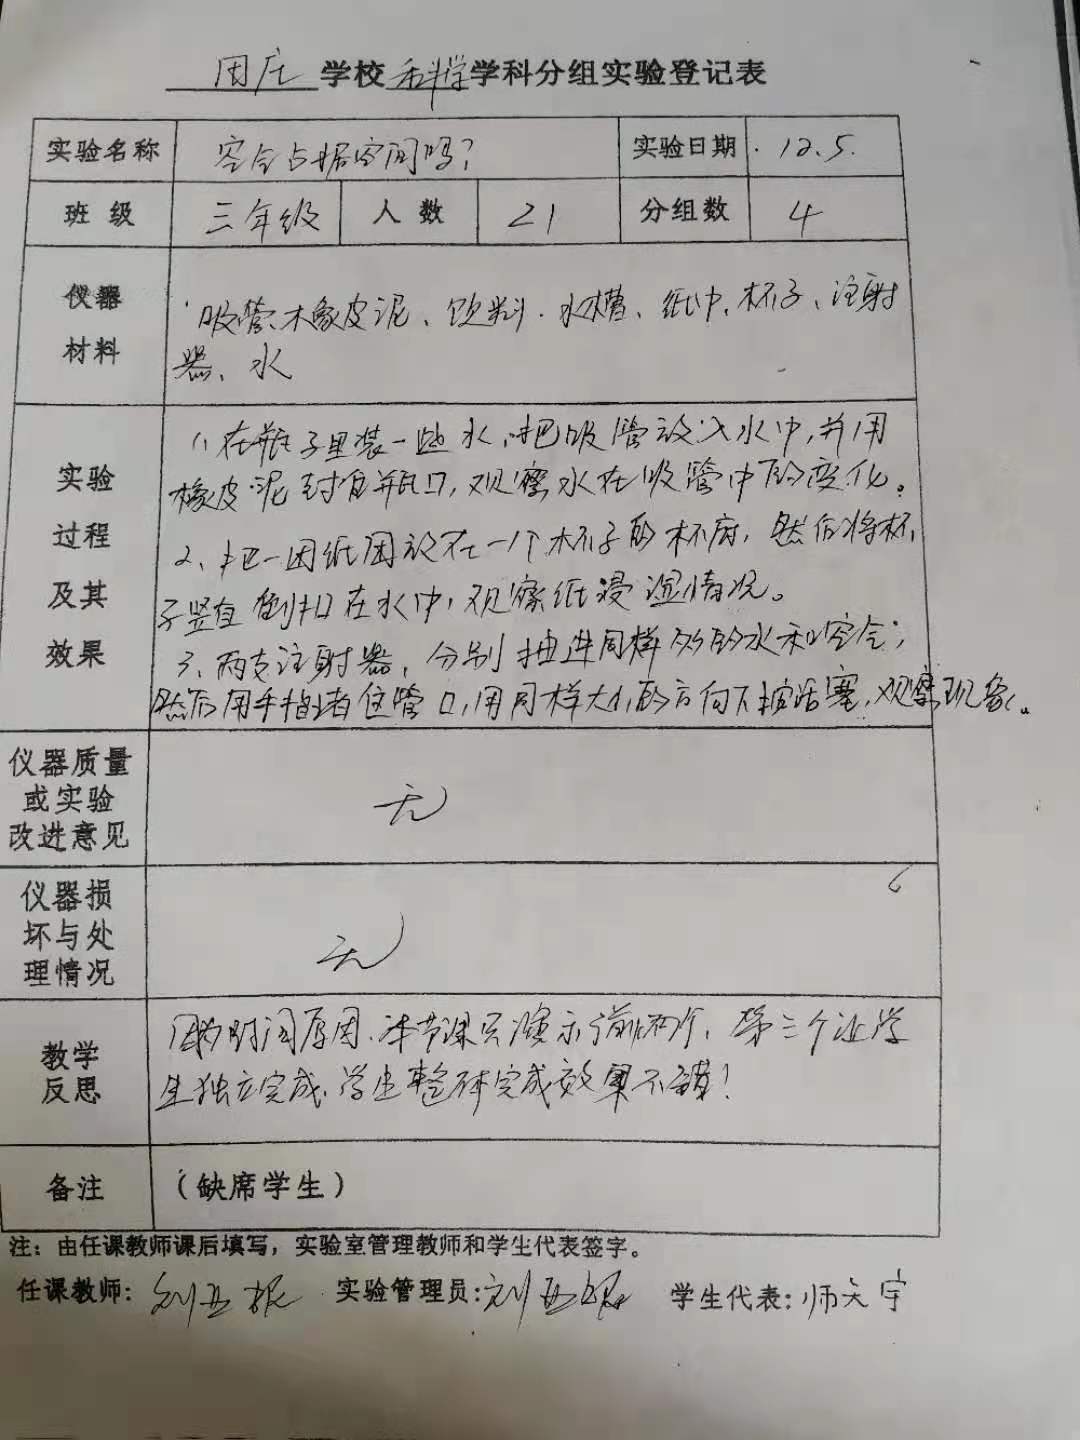 学校 科学 学科分组实验登记表
实验名称 空气占据空间吗? 实验日期 12.5.
班级 三年级 人数 21 分组数 4
仪器材料
吸管、橡皮泥、饮料、水槽、纸巾、杯子、注射
器、水
实验过程及其效果
1、在瓶子里装一些水,把吸管放入水中,并用
橡皮泥封住瓶口,观察水在吸管中的变化。
2、把一团纸团放在一个杯子的杯底,然后将杯
子竖直倒扣在水中,观察纸浸湿情况。
3、两支注射器,分别抽进同样多的水和空气,
然后用手指堵住管口,用同样大小的力向下按活塞,观察现象。
仪器质量或实验改进意见 无
仪器损坏与处理情况 无
教学反思
因为时间原因,本节课只演示前两个,第三个让学
生独立完成,学生整体完成效果不错!
备注 (缺席学生)
注:由任课教师课后填写,实验室管理教师和学生代表签字。
任课教师: 实验管理员: 学生代表:师天宇